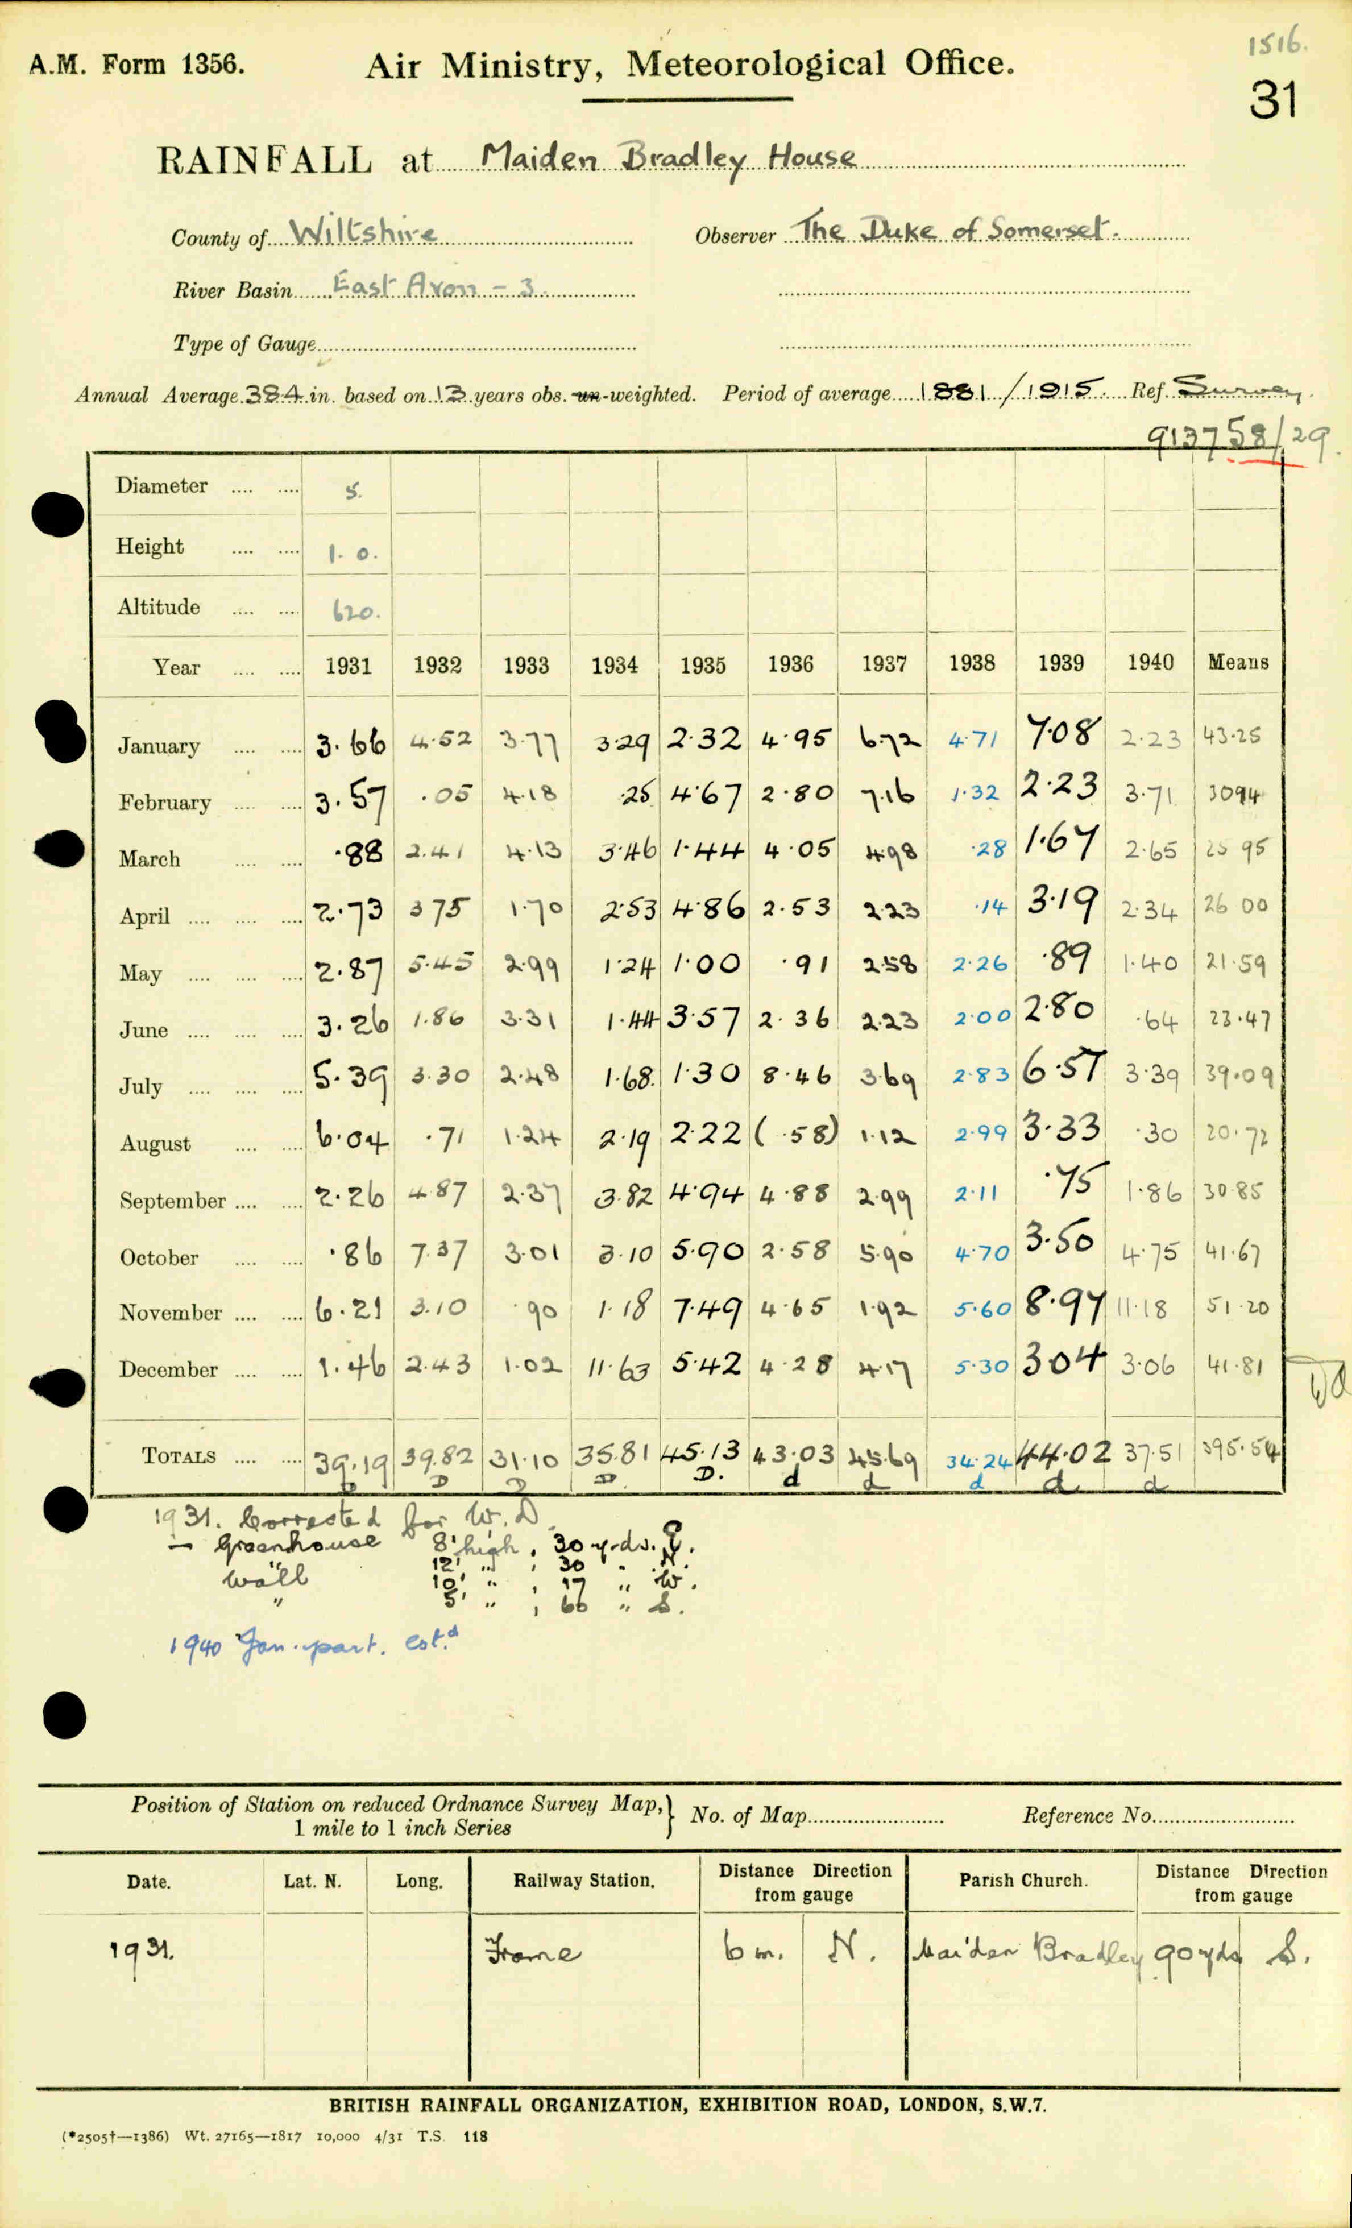 1516.
A.M. Form 1356. Air Ministry, Meteorological Office.
31
RAINFALL at Maiden Bradley House
County of Wiltshire Observer The Duke of Somerset.
River Basin East Avon - 3
Type of Gauge
Annual Average 384 in. based on 13 years obs. un-weighted. Period of average 1881/1915. Ref. Survey
913758/29.
Diameter 5.
Height 1. 0.
Altitude 620.
Year 1931 1932 1933 1934 1935 1936 1937 1938 1939 1940 Means
January 3.66 4.52 3.77 3.29 2.32 4.95 6.72 4.71 7.08 2.23 43.25
February 3.57 .05 4.18 .25 4.67 2.80 7.16 1.32 2.23 3.71 3094
March .88 2.41 4.13 3.46 1.44 4.05 4.98 .28 1.67 2.65 25 95
April 2.73 3 75 1.70 2.53 4.86 2.53 2.23 .14 3.19 2.34 26 00
May 2.87 5.45 2.99 1.24 1.00 .91 2.58 2.26 .89 1.40 21.59
June 3.26 1.86 3.31 1.44 3.57 2.36 2.23 2.00 2.80 .64 23.47
July 5.39 3.30 2.48 1.68 1.30 8.46 3.69 2.83 6.57 3.39 39.09
August 6.04 .71 1.24 2.19 2.22 (.58) 1.12 2.99 3.33 .30 20.72
September 2.26 4.87 2.37 3.82 4.94 4.88 2.99 2.11 .75 1.86 30.85
October .86 7.37 3.01 3.10 5.90 2.58 5.90 4.70 3.50 4.75 41.67
November 6.21 3.10 .90 1.18 7.49 4.65 1.92 5.60 8.97 11.18 51.20
December 1.46 2.43 1.02 11.63 5.42 4.28 4.17 5.30 304 3.06 41.81
TOTALS 39.19 39.82 31.10 35.81 45.13 43.03 45.69 34.24 44.02 37.51 395.54
D D D D D. d d d d d
1931. Corrected for W.D.
Greenhouse 8' high, 30 yds. E.
" 12' " , 30 " N.
Wall 10' " , 17 " W.
" 5' " , 60 " S.
1940 Jan. part. est.d
Position of Station on reduced Ordnance Survey Map, 1 mile to 1 inch Series } No. of Map Reference No.
Date. Lat. N. Long. Railway Station. Distance Direction from gauge Parish Church. Distance Direction from gauge
1931. Frome 6 m. N. Maiden Bradley 90 yds S.
BRITISH RAINFALL ORGANIZATION, EXHIBITION ROAD, LONDON, S.W.7.
(*2505†—1386) Wt. 27165—1817 10,000 4/31 T.S. 118